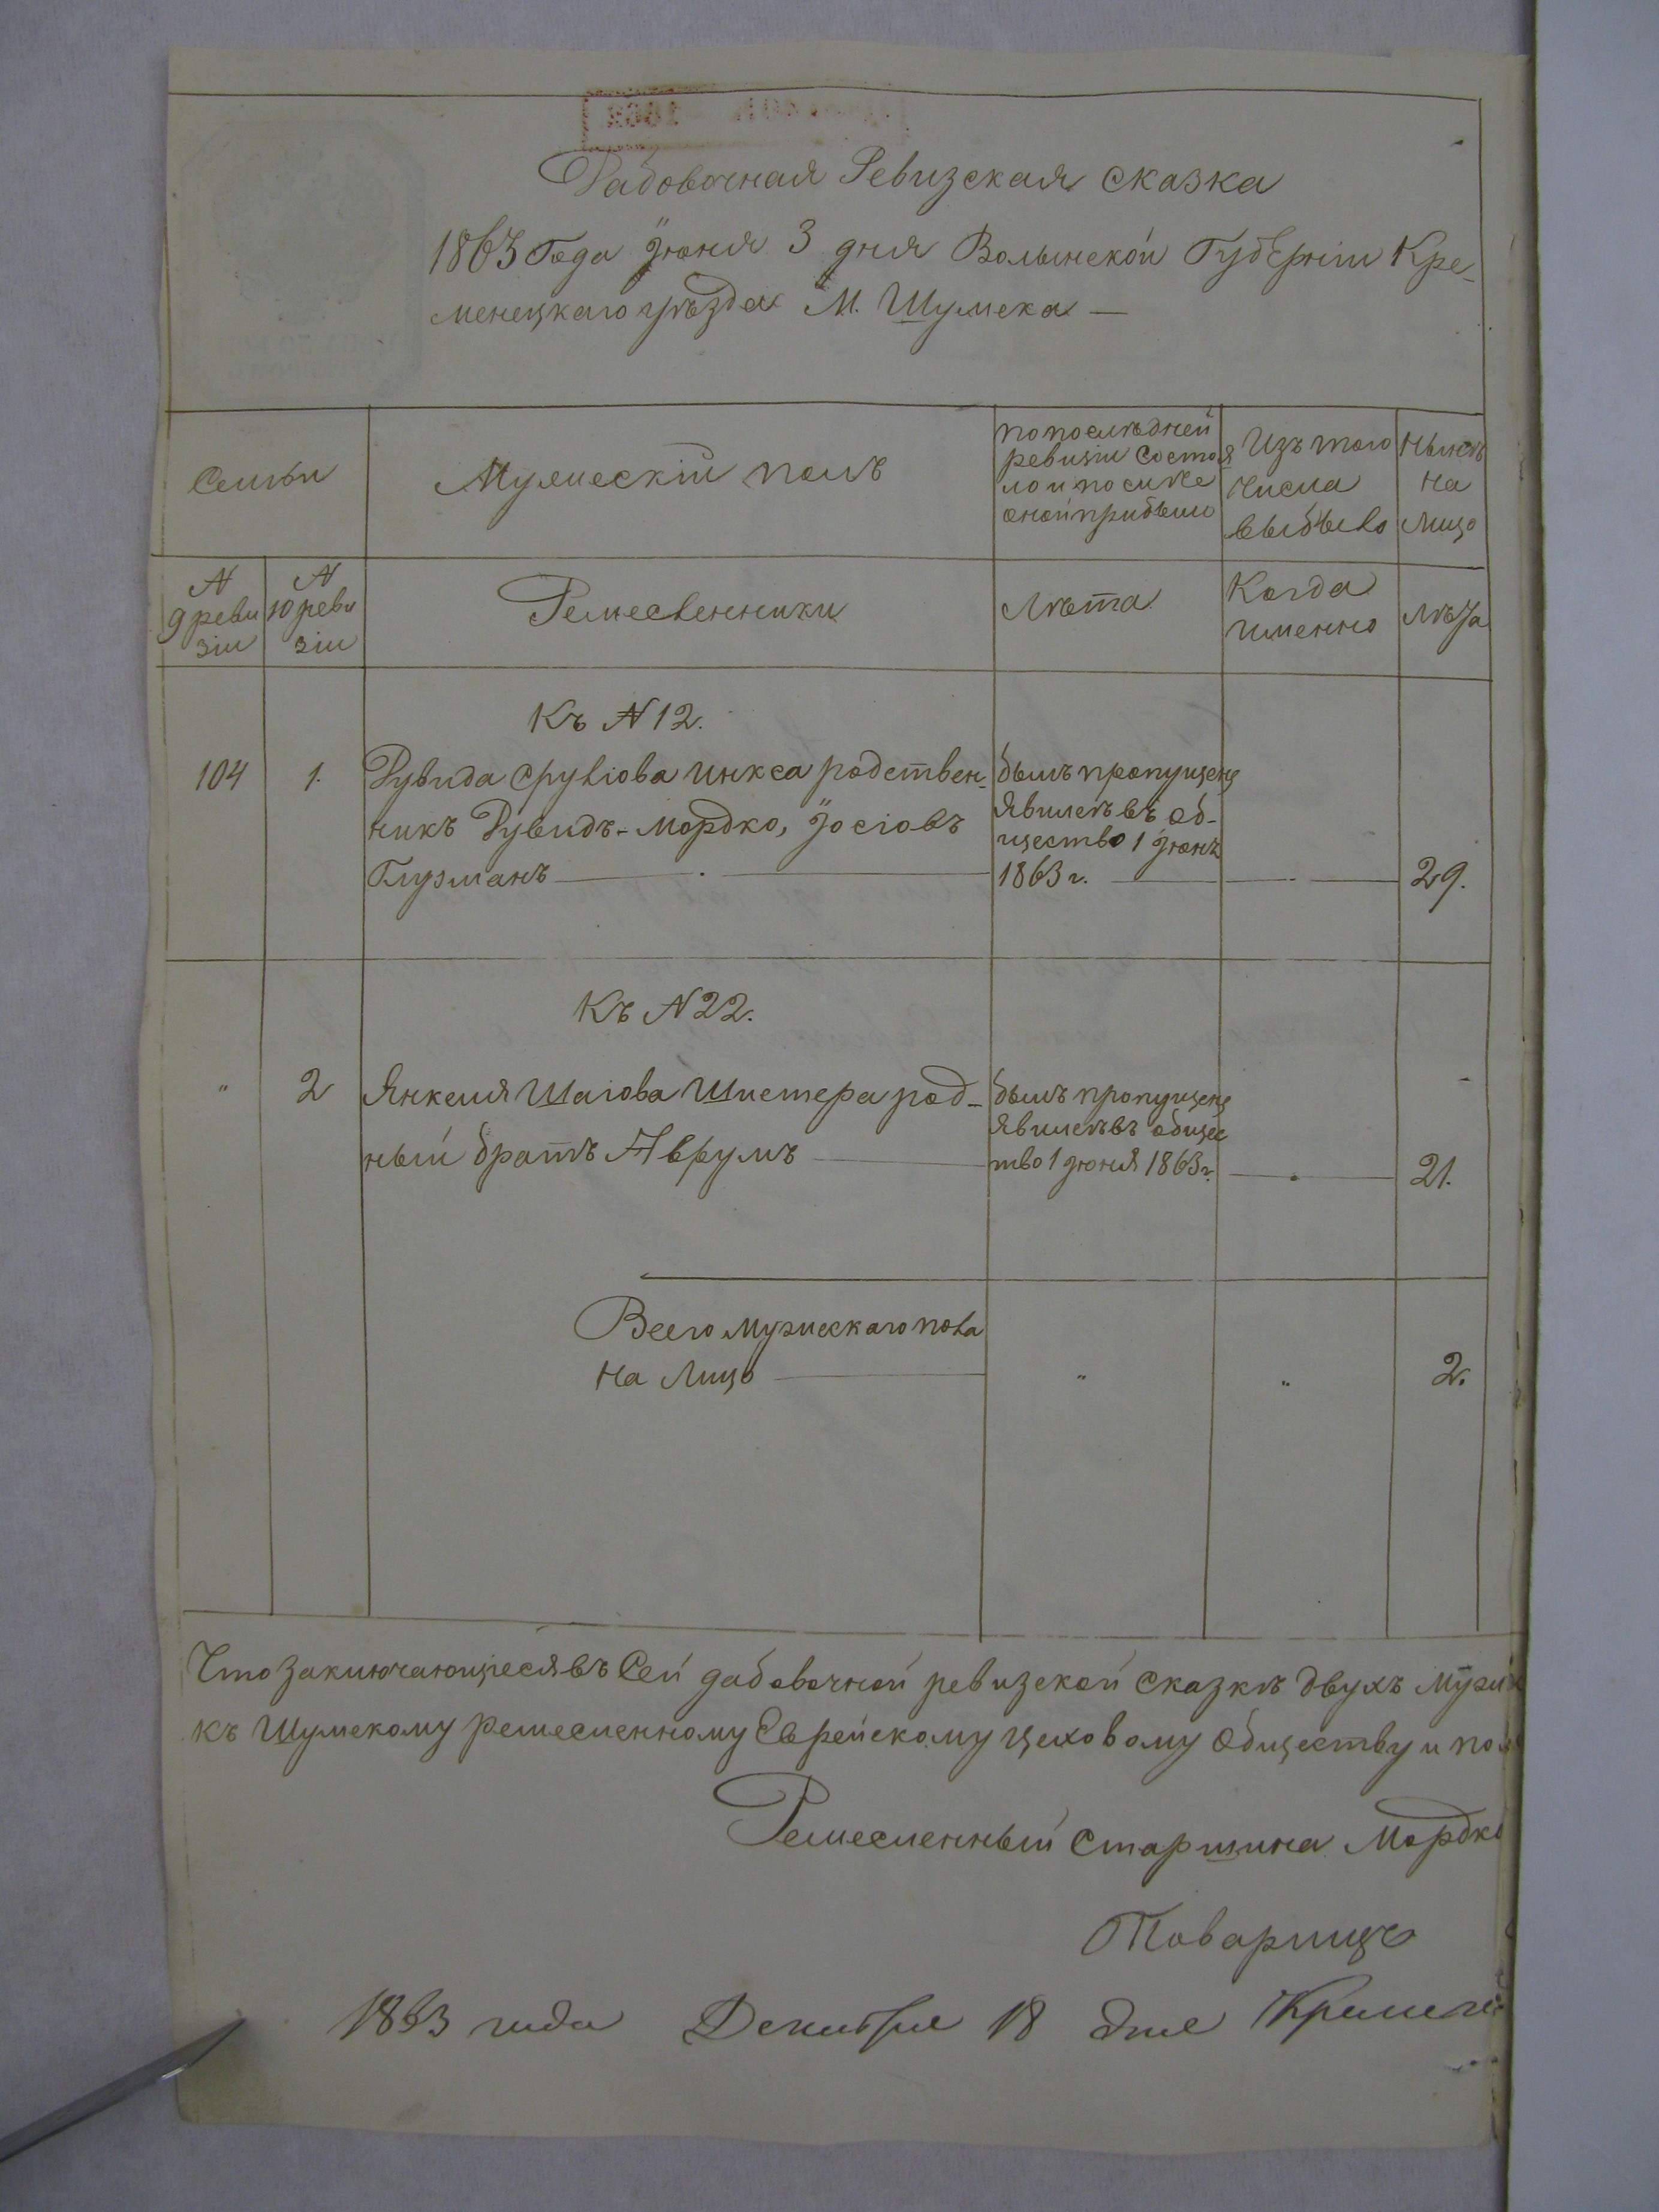 Дабовочная Ревизская сказка
1863 Года Іюня 3 дня Волынской Губерніи Кре-
менецкаго уѣзда М. Шумска —
Семьи
Мужескій полъ
по послѣдней
ревизіи состоя
ло и послѣ
оной прибыло
Изъ того
числа
выбыло
Нынѣ
на
лицо
N
9 реви
зіи
N
10 реви
зіи
Ремесленники
Лѣта
Когда
именно
Лѣта
Къ N 12.
104 1. Рувида Сруліова Инкса родствен-
никъ Рувидъ-Мордко, Іосіовъ
Глузманъ
былъ пропущенъ
явился въ об-
щество 1 Іюня
1863 г.
29.
Къ N 22.
" 2 Янкеля Шаіова Шистера род-
ный братъ Аврумъ
былъ пропущенъ
явился въ общес
тво 1 Іюня 1863 г.
21.
Всего мужескаго пола
на Лицо " " 2.
Что заключающіеся въ Сей дабовочной ревизской Сказкѣ двухъ муж
къ Шумскому ремесленному Еврейскому цеховому обществу и пол
Ремесленный Старшина Мордко
Товарищъ
1863 года Декабря 18 дня Кремен